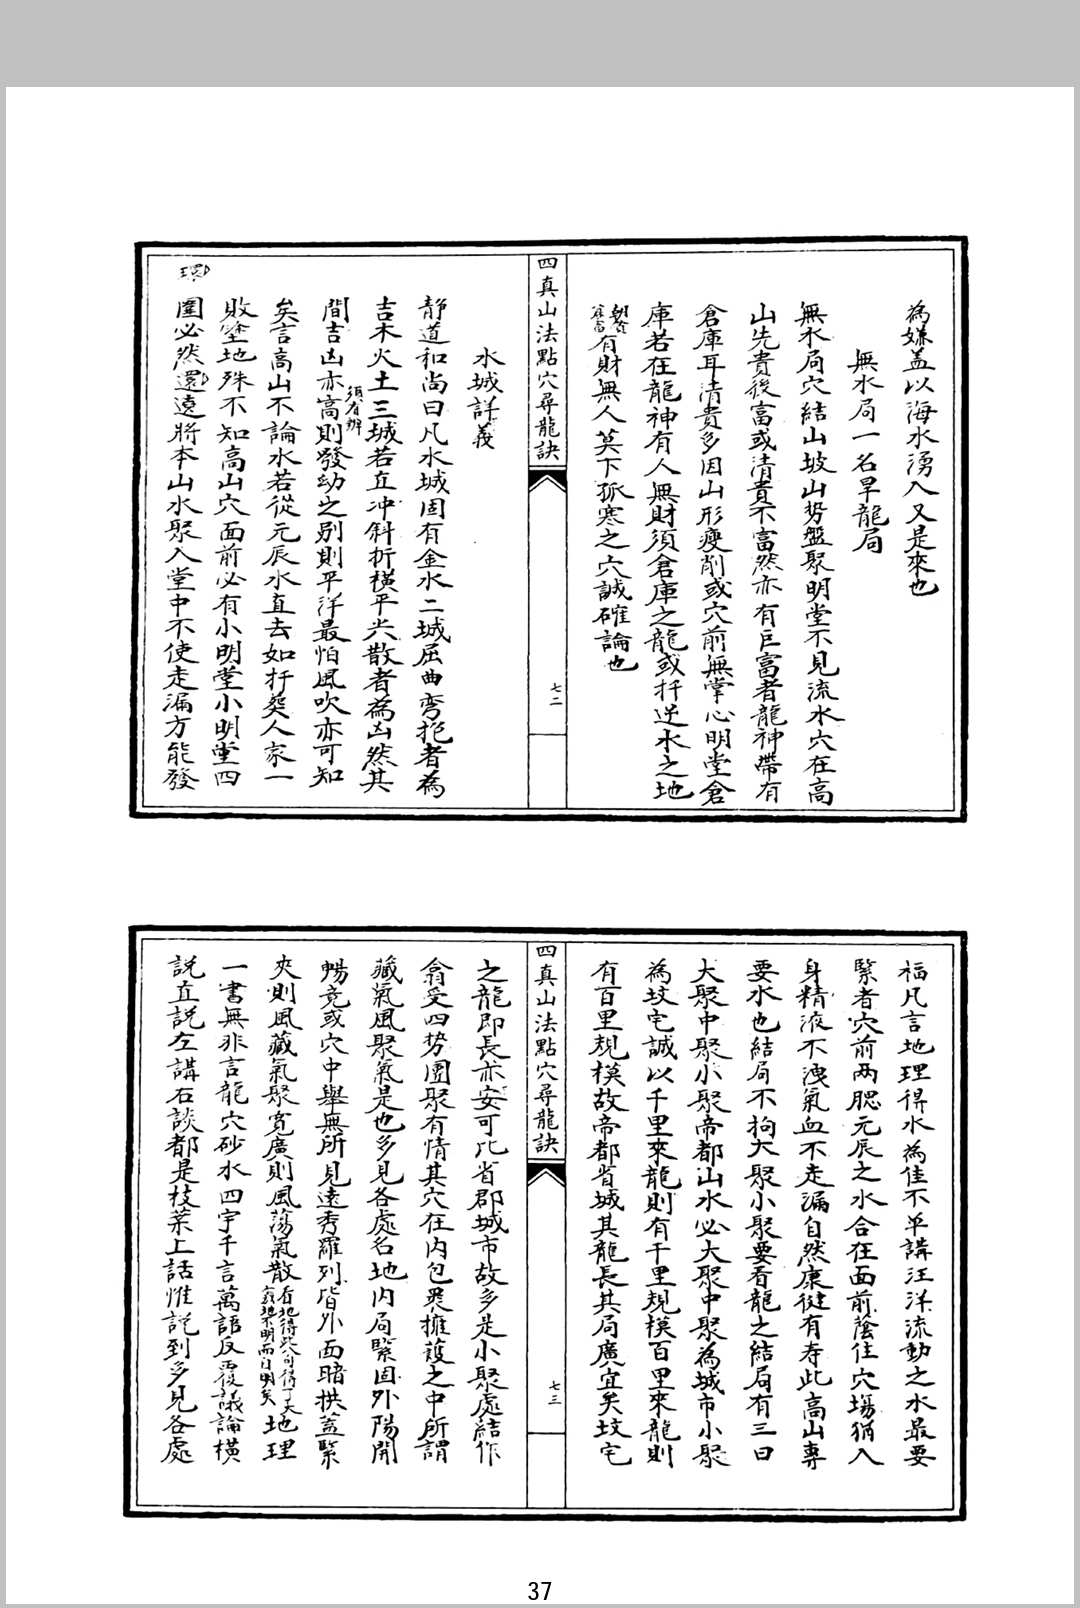 為嫌盖以海水湧入又是來也
無水局一名旱龍局
無水局穴結山坡山势盤聚明堂不見流水穴在高
山先貴後富或清貴不富然亦有巨富者龍神帶有
倉庫耳清貴多因山形瘦削或穴前無掌心明堂倉
庫若在龍神有人無財須倉庫之龍或扦逆水之地
有財無人莫下孤寒之穴誠確論也
四真山法點穴尋龍訣
七二
水城詳義
静道和尚曰凡水城固有金水二城屈曲弯抱者為
吉木火土三城若直冲斜折橫平尖散者為凶然其
間吉凶亦須有辨高則發幼之别則平洋最怕風吹亦可知
矣言高山不論水若從元辰水直去如扦葵人家一
敗塗地殊不知高山穴面前必有小明堂小明堂四
環
圍必然還遶將本山水聚入堂中不使走漏方能發
福凡言地理得水為佳不单講汪洋流動之水最要
緊者穴前两腮元辰之水合在面前蔭住穴塲猶人
身精液不洩氣血不走漏自然康健有寿此高山專
要水也結局不拘大聚小聚要看龍之結局有三曰
大聚中聚小聚帝都山水必大聚中聚為城市小聚
為坟宅誠以千里來龍則有千里規模百里來龍則
有百里規模故帝都省城其龍長其局廣宜矣坟宅
四真山法點穴尋龍訣
七三
之龍即長亦安可比省郡城市故多是小聚處結作
翕受四势團聚有情其穴在内包褁擁護之中所謂
藏氣風聚氣是也多見各處名地内局緊固外陽開
暢竟或穴中舉無所見遠秀羅列皆外面暗拱蓋緊
夾則風藏氣聚寬廣則風蕩氣散看地得此句得丁天地理
一書無非言龍穴砂水四字千言萬語反覆議論橫
説直説左講右談都是枝葉上話惟説到多見各處
37